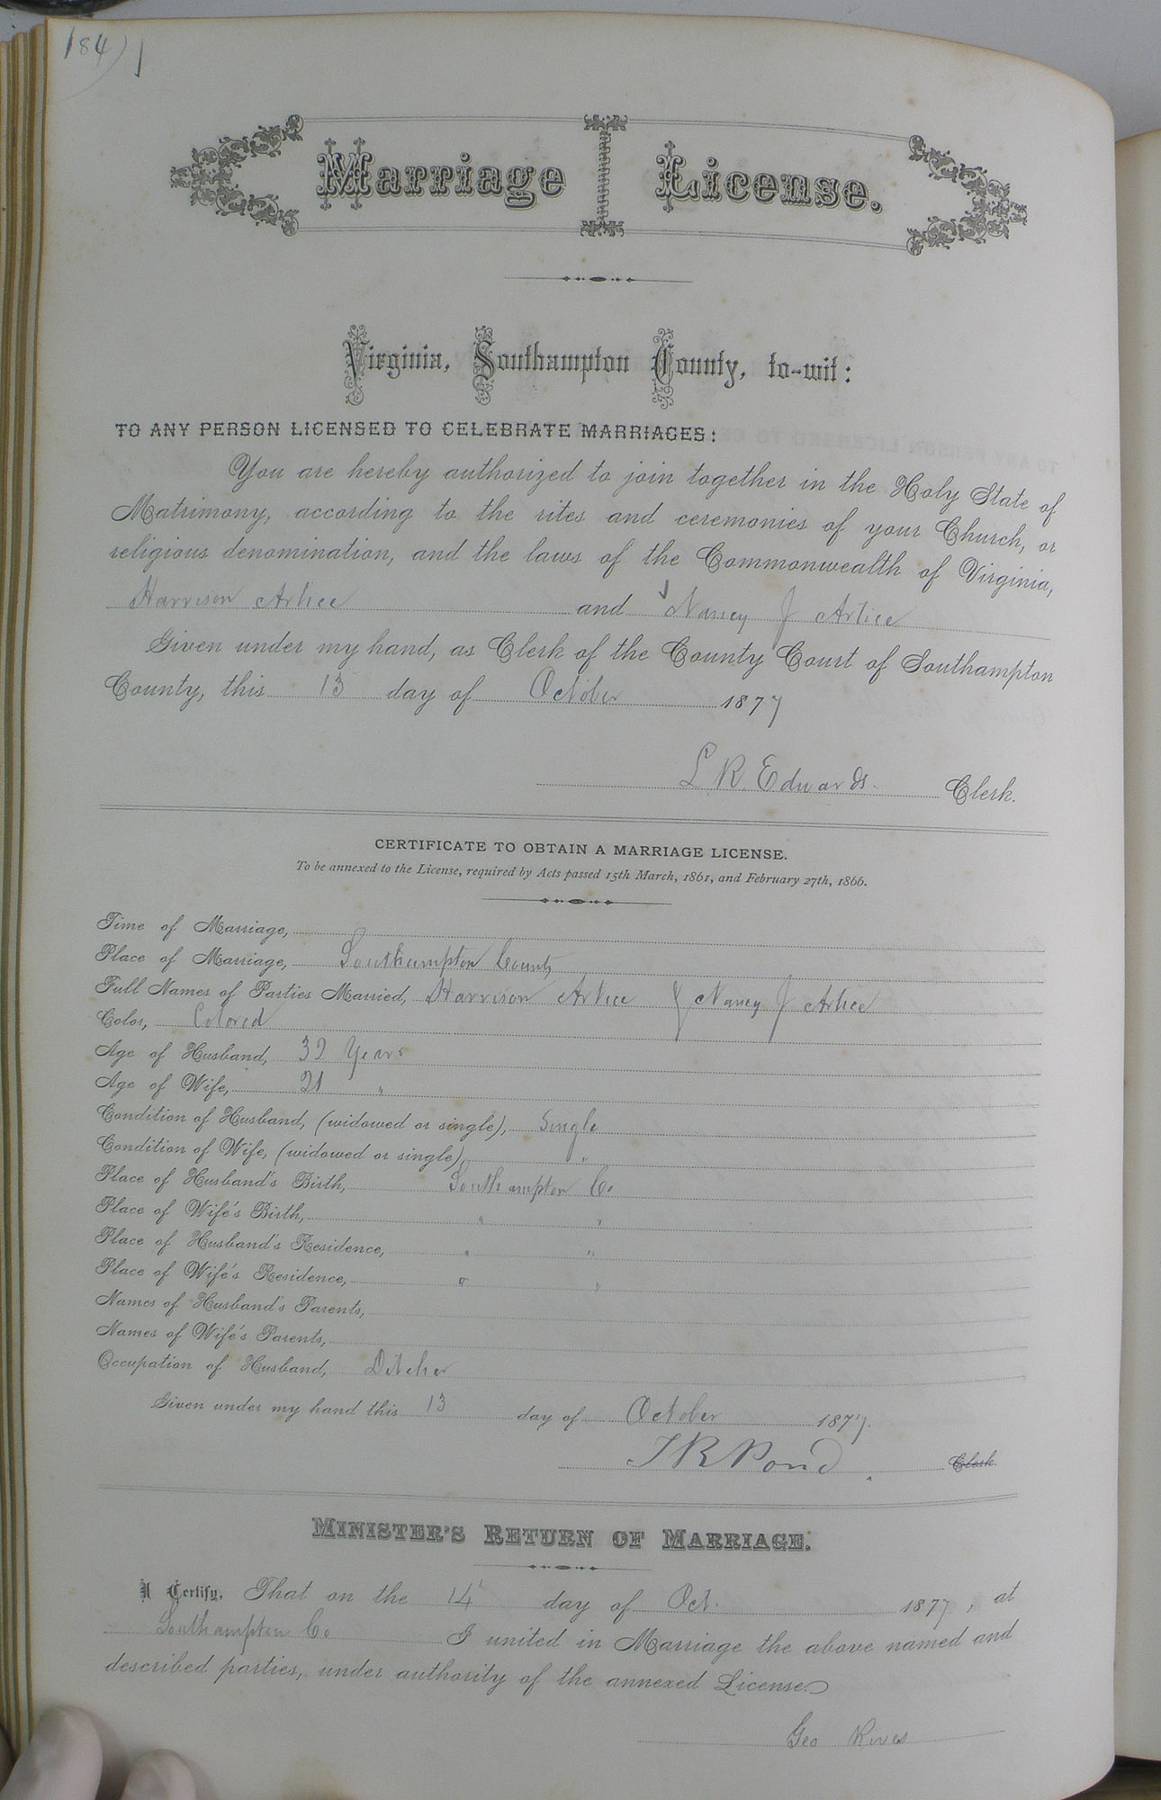 184)
Marriage License.
Virginia, Southampton County, to-wit:
TO ANY PERSON LICENSED TO CELEBRATE MARRIAGES:
You are hereby authorized to join together in the Holy State of
Matrimony, according to the rites and ceremonies of your Church, or
religious denomination, and the laws of the Commonwealth of Virginia,
Harrison Artice and Nancy J Artice
Given under my hand, as Clerk of the County Court of Southampton
County, this 13 day of October 1877
L R. Edwards. Clerk.
CERTIFICATE TO OBTAIN A MARRIAGE LICENSE.
To be annexed to the License, required by Acts passed 15th March, 1861, and February 27th, 1866.
Time of Marriage,
Place of Marriage, Southampton County
Full Names of Parties Married, Harrison Artice & Nancy J Artice
Color, Colored
Age of Husband, 32 Years
Age of Wife, 21 "
Condition of Husband, (widowed or single), Single
Condition of Wife, (widowed or single) "
Place of Husband's Birth, Southampton Co.
Place of Wife's Birth, " "
Place of Husband's Residence, " "
Place of Wife's Residence, " "
Names of Husband's Parents,
Names of Wife's Parents,
Occupation of Husband, Ditcher
Given under my hand this 13 day of October 1877.
T R Pond. Clerk.
MINISTER'S RETURN OF MARRIAGE.
I Certify, That on the 14 day of Oct. 1877, at
Southampton Co I united in Marriage the above named and
described parties, under authority of the annexed License.
Geo Rives